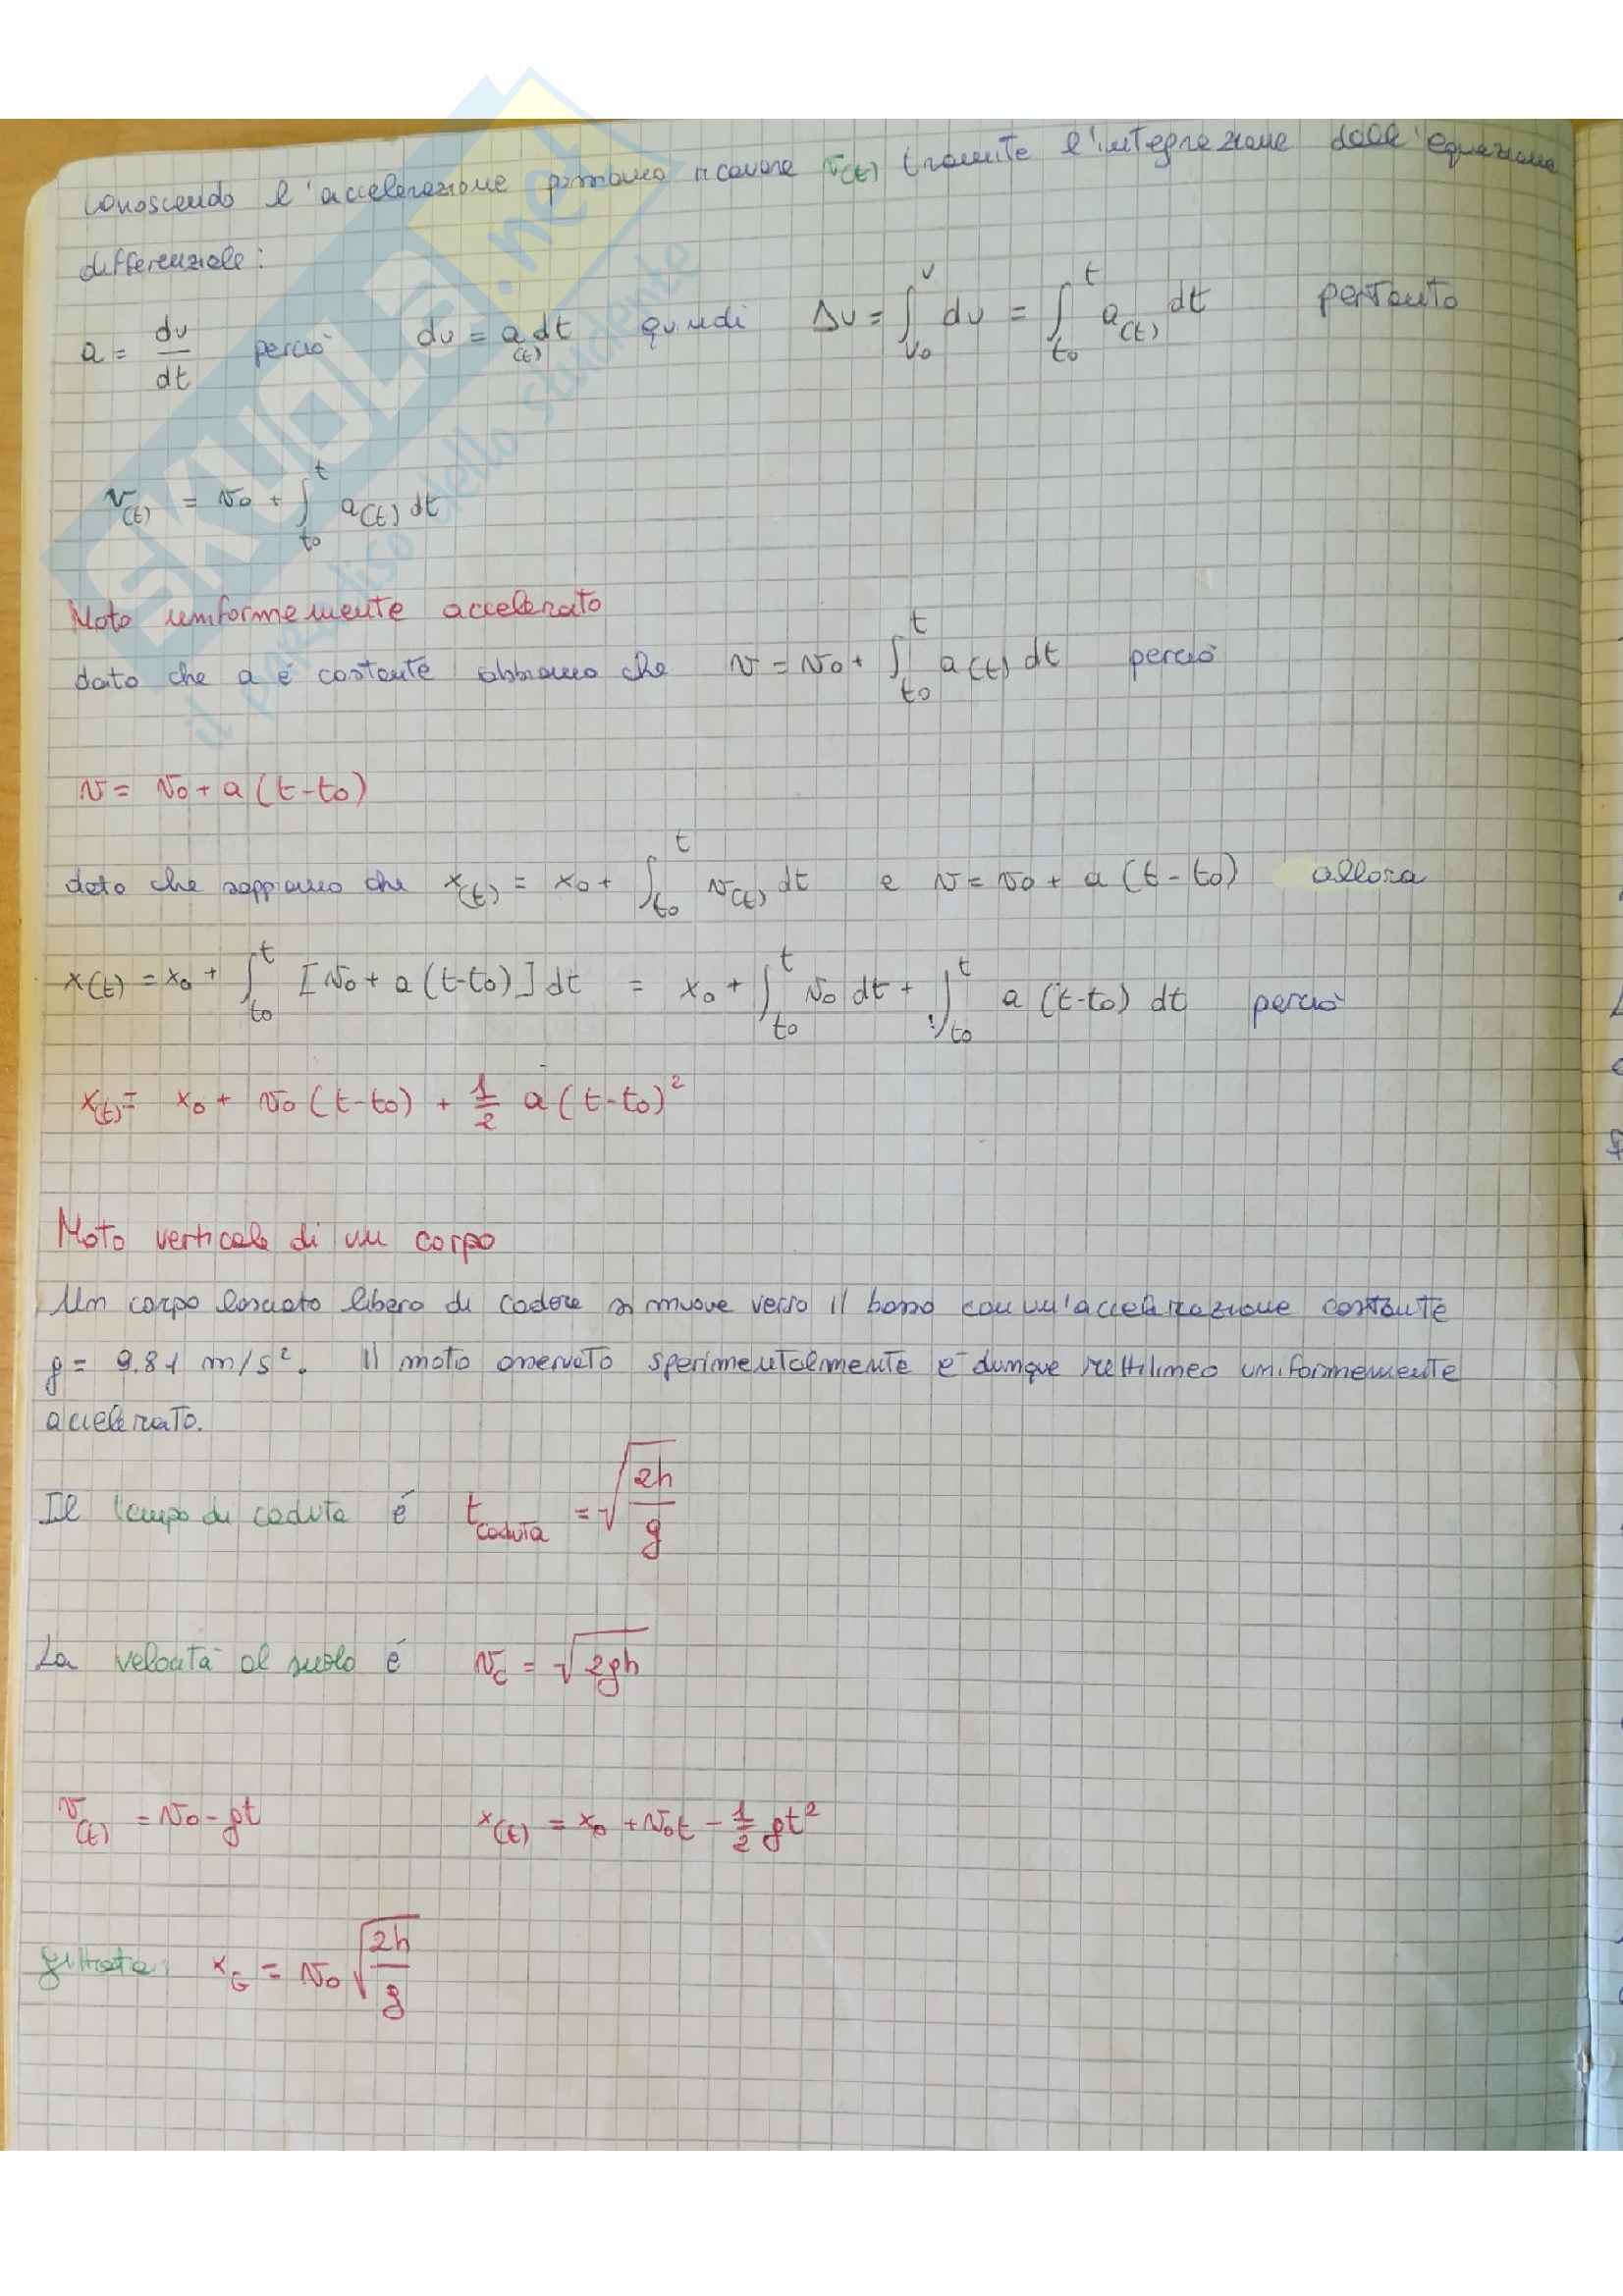 SKUOLA.net
il paradiso dello studente
conoscendo l'accelerazione possiamo ricavare v(t) tramite l'integrazione dell'equazione
differenziale:
a = dv/dt perciò dv = a(t) dt quindi Δv = ∫_{v0}^{v} dv = ∫_{t0}^{t} a(t) dt pertanto
v(t) = v0 + ∫_{t0}^{t} a(t) dt
Moto uniformemente accelerato
dato che a é costante abbiamo che v = v0 + ∫_{t0}^{t} a(t) dt perciò
v = v0 + a (t-t0)
dato che sappiamo che x(t) = x0 + ∫_{t0}^{t} v(t) dt e v = v0 + a (t-t0) allora
x(t) = x0 + ∫_{t0}^{t} [v0 + a (t-t0)] dt = x0 + ∫_{t0}^{t} v0 dt + ∫_{t0}^{t} a (t-t0) dt perciò
x(t) = x0 + v0 (t-t0) + 1/2 a (t-t0)²
Moto verticale di un corpo
Un corpo lasciato libero di cadere si muove verso il basso con un'accelerazione costante
g = 9.81 m/s². Il moto osservato sperimentalmente è dunque rettilineo uniformemente
accelerato.
Il tempo di caduta é t_caduta = √(2h/g)
La velocità al suolo é v_c = √(2gh)
v(t) = v0 - gt x(t) = x0 + v0t - 1/2 gt²
gittata: x_G = v0 √(2h/g)